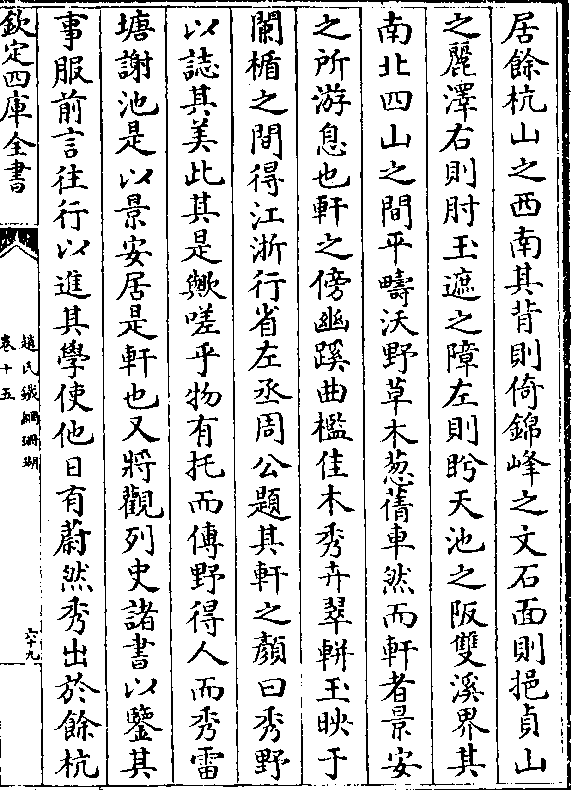 居餘杭山之西南其背則倚錦峰之文石面則挹貞山
之麗澤右則肘玉遮之障左則盻天池之阪雙溪界其
南北四山之間平疇沃野草木葱蒨車然而軒者景安
之所游息也軒之傍幽蹊曲檻佳木秀卉翠輧玉映于
闌楯之間得江浙行省左丞周公題其軒之顏曰秀野
以誌其美此其是歟嗟乎物有托而傳野得人而秀雷
塘謝池是以景安居是軒也又將觀列史諸書以鑒其
事服前言往行以進其學使他日有蔚然秀出於餘杭
欽定四庫全書
趙氏鐵網珊瑚
卷十五
六十九